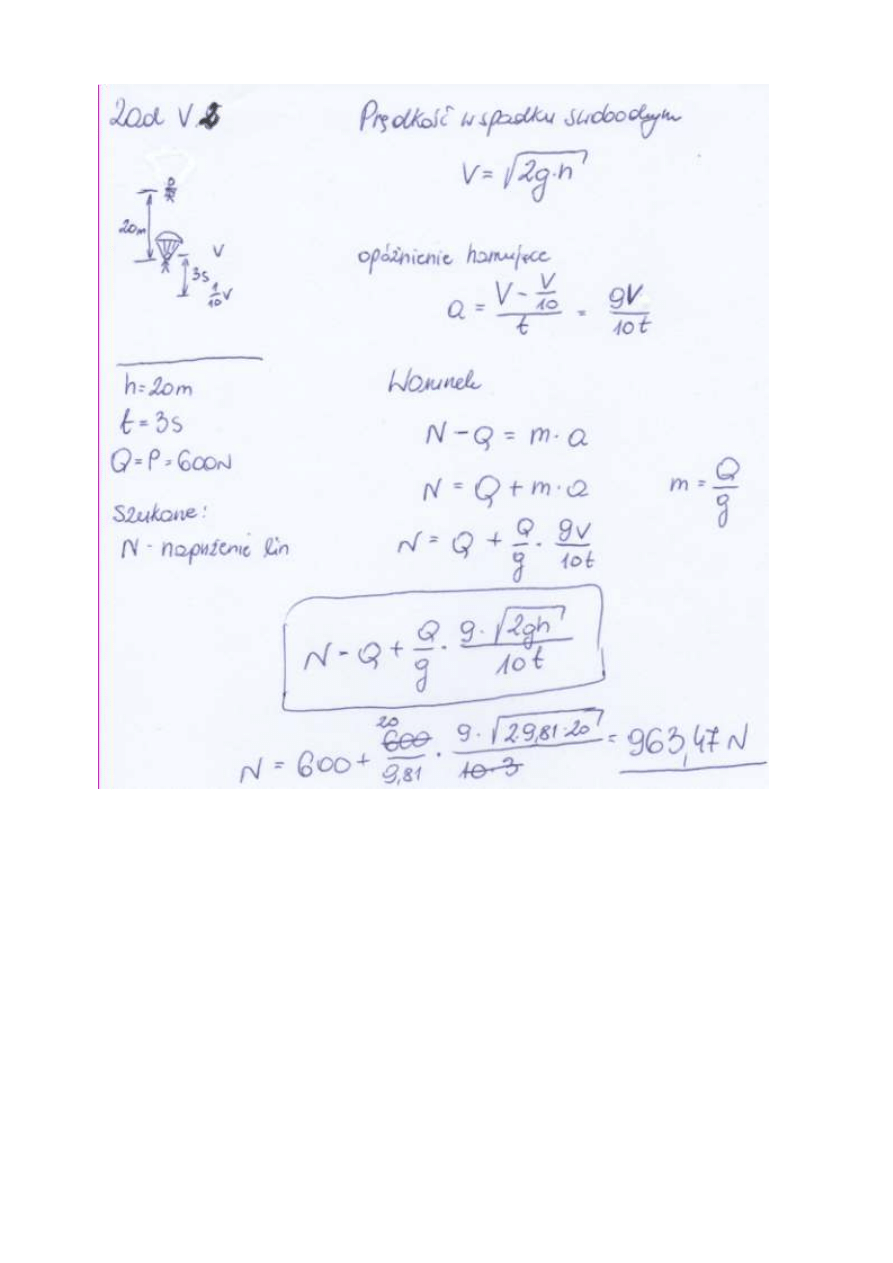 Zad V.2
Prędkość w spadku swobodnym
V = √2g·h
20m
V
3s
1/10 V
opóźnienie hamujące
a = (V - V/10)/t = 9V/10t
h = 20m
t = 3s
Q = P = 600N
Szukane:
N - naprężenie lin
Warunek
N - Q = m · a
N = Q + m · a
m = Q/g
N = Q + Q/g · 9V/10t
N = Q + Q/g · 9·√2gh/10t
N = 600 + 20 600/9,81 · 9·√2·9,81·20/10·3 = 963,47 N